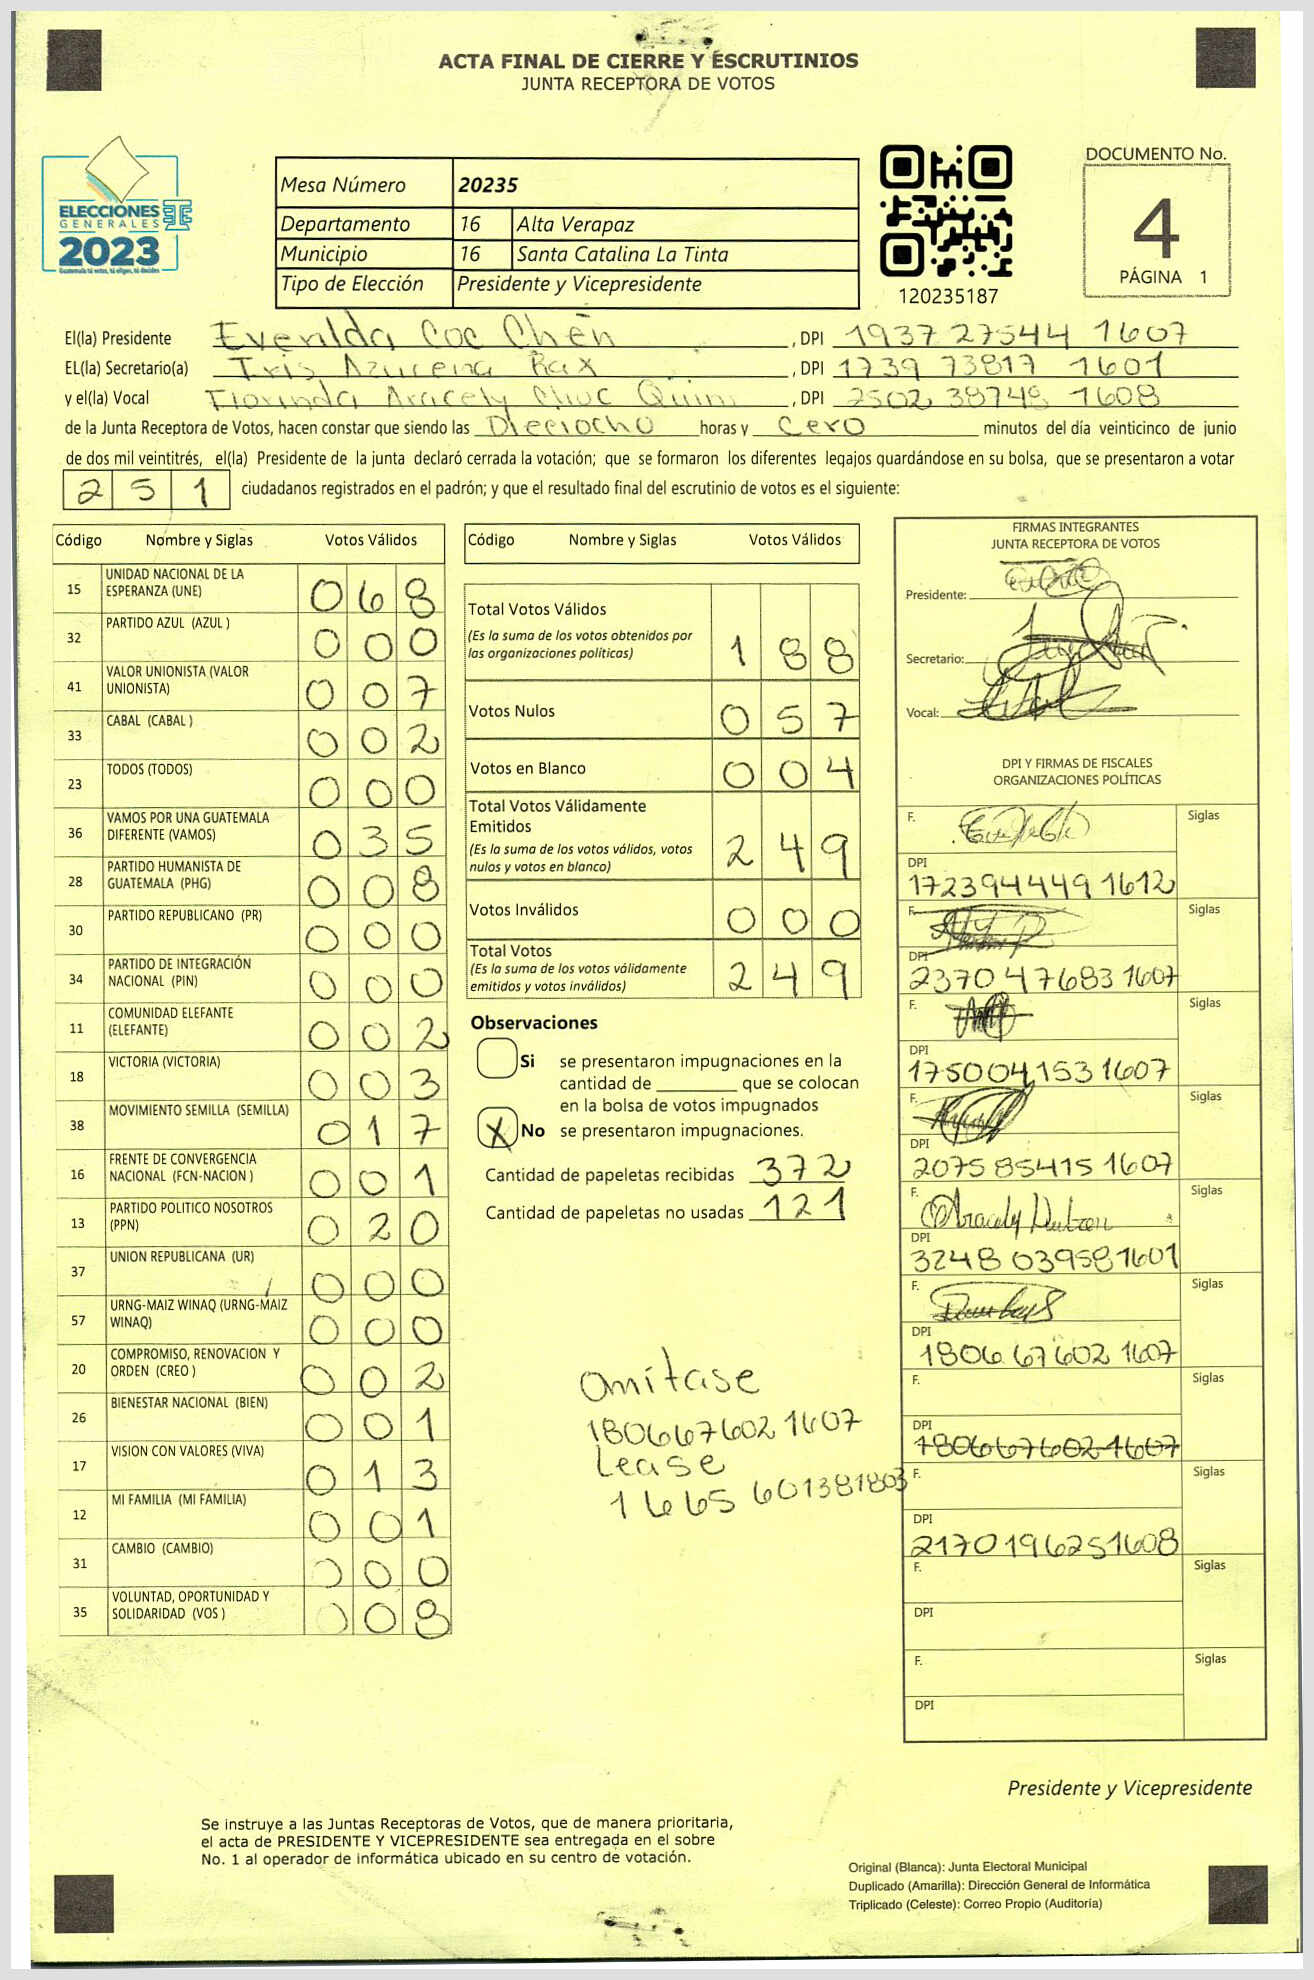 ACTA FINAL DE CIERRE Y ESCRUTINIOS
JUNTA RECEPTORA DE VOTOS
ELECCIONES
GENERALES
2023
Guatemala tú votas, tú eliges, tú decides
Mesa Número 20235
Departamento 16 Alta Verapaz
Municipio 16 Santa Catalina La Tinta
Tipo de Elección Presidente y Vicepresidente
120235187
DOCUMENTO No.
4
PÁGINA 1
El(la) Presidente Evenlda Coc Chén , DPI 1937 27544 1607
EL(la) Secretario(a) Iris Azucena Rax , DPI 1739 73817 1601
y el(la) Vocal Florinda Aracely Chuc Quim , DPI 2502 38748 1608
de la Junta Receptora de Votos, hacen constar que siendo las Dieciocho horas y Cero minutos del día veinticinco de junio
de dos mil veintitrés, el(la) Presidente de la junta declaró cerrada la votación; que se formaron los diferentes legajos guardándose en su bolsa, que se presentaron a votar
251 ciudadanos registrados en el padrón; y que el resultado final del escrutinio de votos es el siguiente:
Código Nombre y Siglas Votos Válidos
15 UNIDAD NACIONAL DE LA ESPERANZA (UNE) 068
32 PARTIDO AZUL (AZUL ) 000
41 VALOR UNIONISTA (VALOR UNIONISTA) 007
33 CABAL (CABAL ) 002
23 TODOS (TODOS) 000
36 VAMOS POR UNA GUATEMALA DIFERENTE (VAMOS) 035
28 PARTIDO HUMANISTA DE GUATEMALA (PHG) 008
30 PARTIDO REPUBLICANO (PR) 000
34 PARTIDO DE INTEGRACIÓN NACIONAL (PIN) 000
11 COMUNIDAD ELEFANTE (ELEFANTE) 002
18 VICTORIA (VICTORIA) 003
38 MOVIMIENTO SEMILLA (SEMILLA) 017
16 FRENTE DE CONVERGENCIA NACIONAL (FCN-NACION ) 001
13 PARTIDO POLITICO NOSOTROS (PPN) 020
37 UNION REPUBLICANA (UR) 000
57 URNG-MAIZ WINAQ (URNG-MAIZ WINAQ) 000
20 COMPROMISO, RENOVACION Y ORDEN (CREO ) 002
26 BIENESTAR NACIONAL (BIEN) 001
17 VISION CON VALORES (VIVA) 013
12 MI FAMILIA (MI FAMILIA) 001
31 CAMBIO (CAMBIO) 000
35 VOLUNTAD, OPORTUNIDAD Y SOLIDARIDAD (VOS ) 008
Código Nombre y Siglas Votos Válidos
Total Votos Válidos 188
(Es la suma de los votos obtenidos por
las organizaciones políticas)
Votos Nulos 057
Votos en Blanco 004
Total Votos Válidamente
Emitidos 249
(Es la suma de los votos válidos, votos
nulos y votos en blanco)
Votos Inválidos 000
Total Votos 249
(Es la suma de los votos válidamente
emitidos y votos inválidos)
Observaciones
Si se presentaron impugnaciones en la
cantidad de ________ que se colocan
en la bolsa de votos impugnados
X No se presentaron impugnaciones.
Cantidad de papeletas recibidas 372
Cantidad de papeletas no usadas 121
Omitase
1806676021607
Lease
1665 601381803
FIRMAS INTEGRANTES
JUNTA RECEPTORA DE VOTOS
Presidente:
Secretario:
Vocal:
DPI Y FIRMAS DE FISCALES
ORGANIZACIONES POLÍTICAS
F. Siglas
DPI
172394449 1612
F. Siglas
DPI
2370 47683 1607
F. Siglas
DPI
1750041531607
F. Siglas
DPI
2075 85415 1607
F. Aracely Siglas
DPI
3248 039581601
F. Siglas
DPI
1806 67602 1607
F. Siglas
DPI
1806676021607
F. Siglas
DPI
2170196251608
F. Siglas
DPI
F. Siglas
DPI
Presidente y Vicepresidente
Se instruye a las Juntas Receptoras de Votos, que de manera prioritaria,
el acta de PRESIDENTE Y VICEPRESIDENTE sea entregada en el sobre
No. 1 al operador de informática ubicado en su centro de votación.
Original (Blanca): Junta Electoral Municipal
Duplicado (Amarilla): Dirección General de Informática
Triplicado (Celeste): Correo Propio (Auditoría)